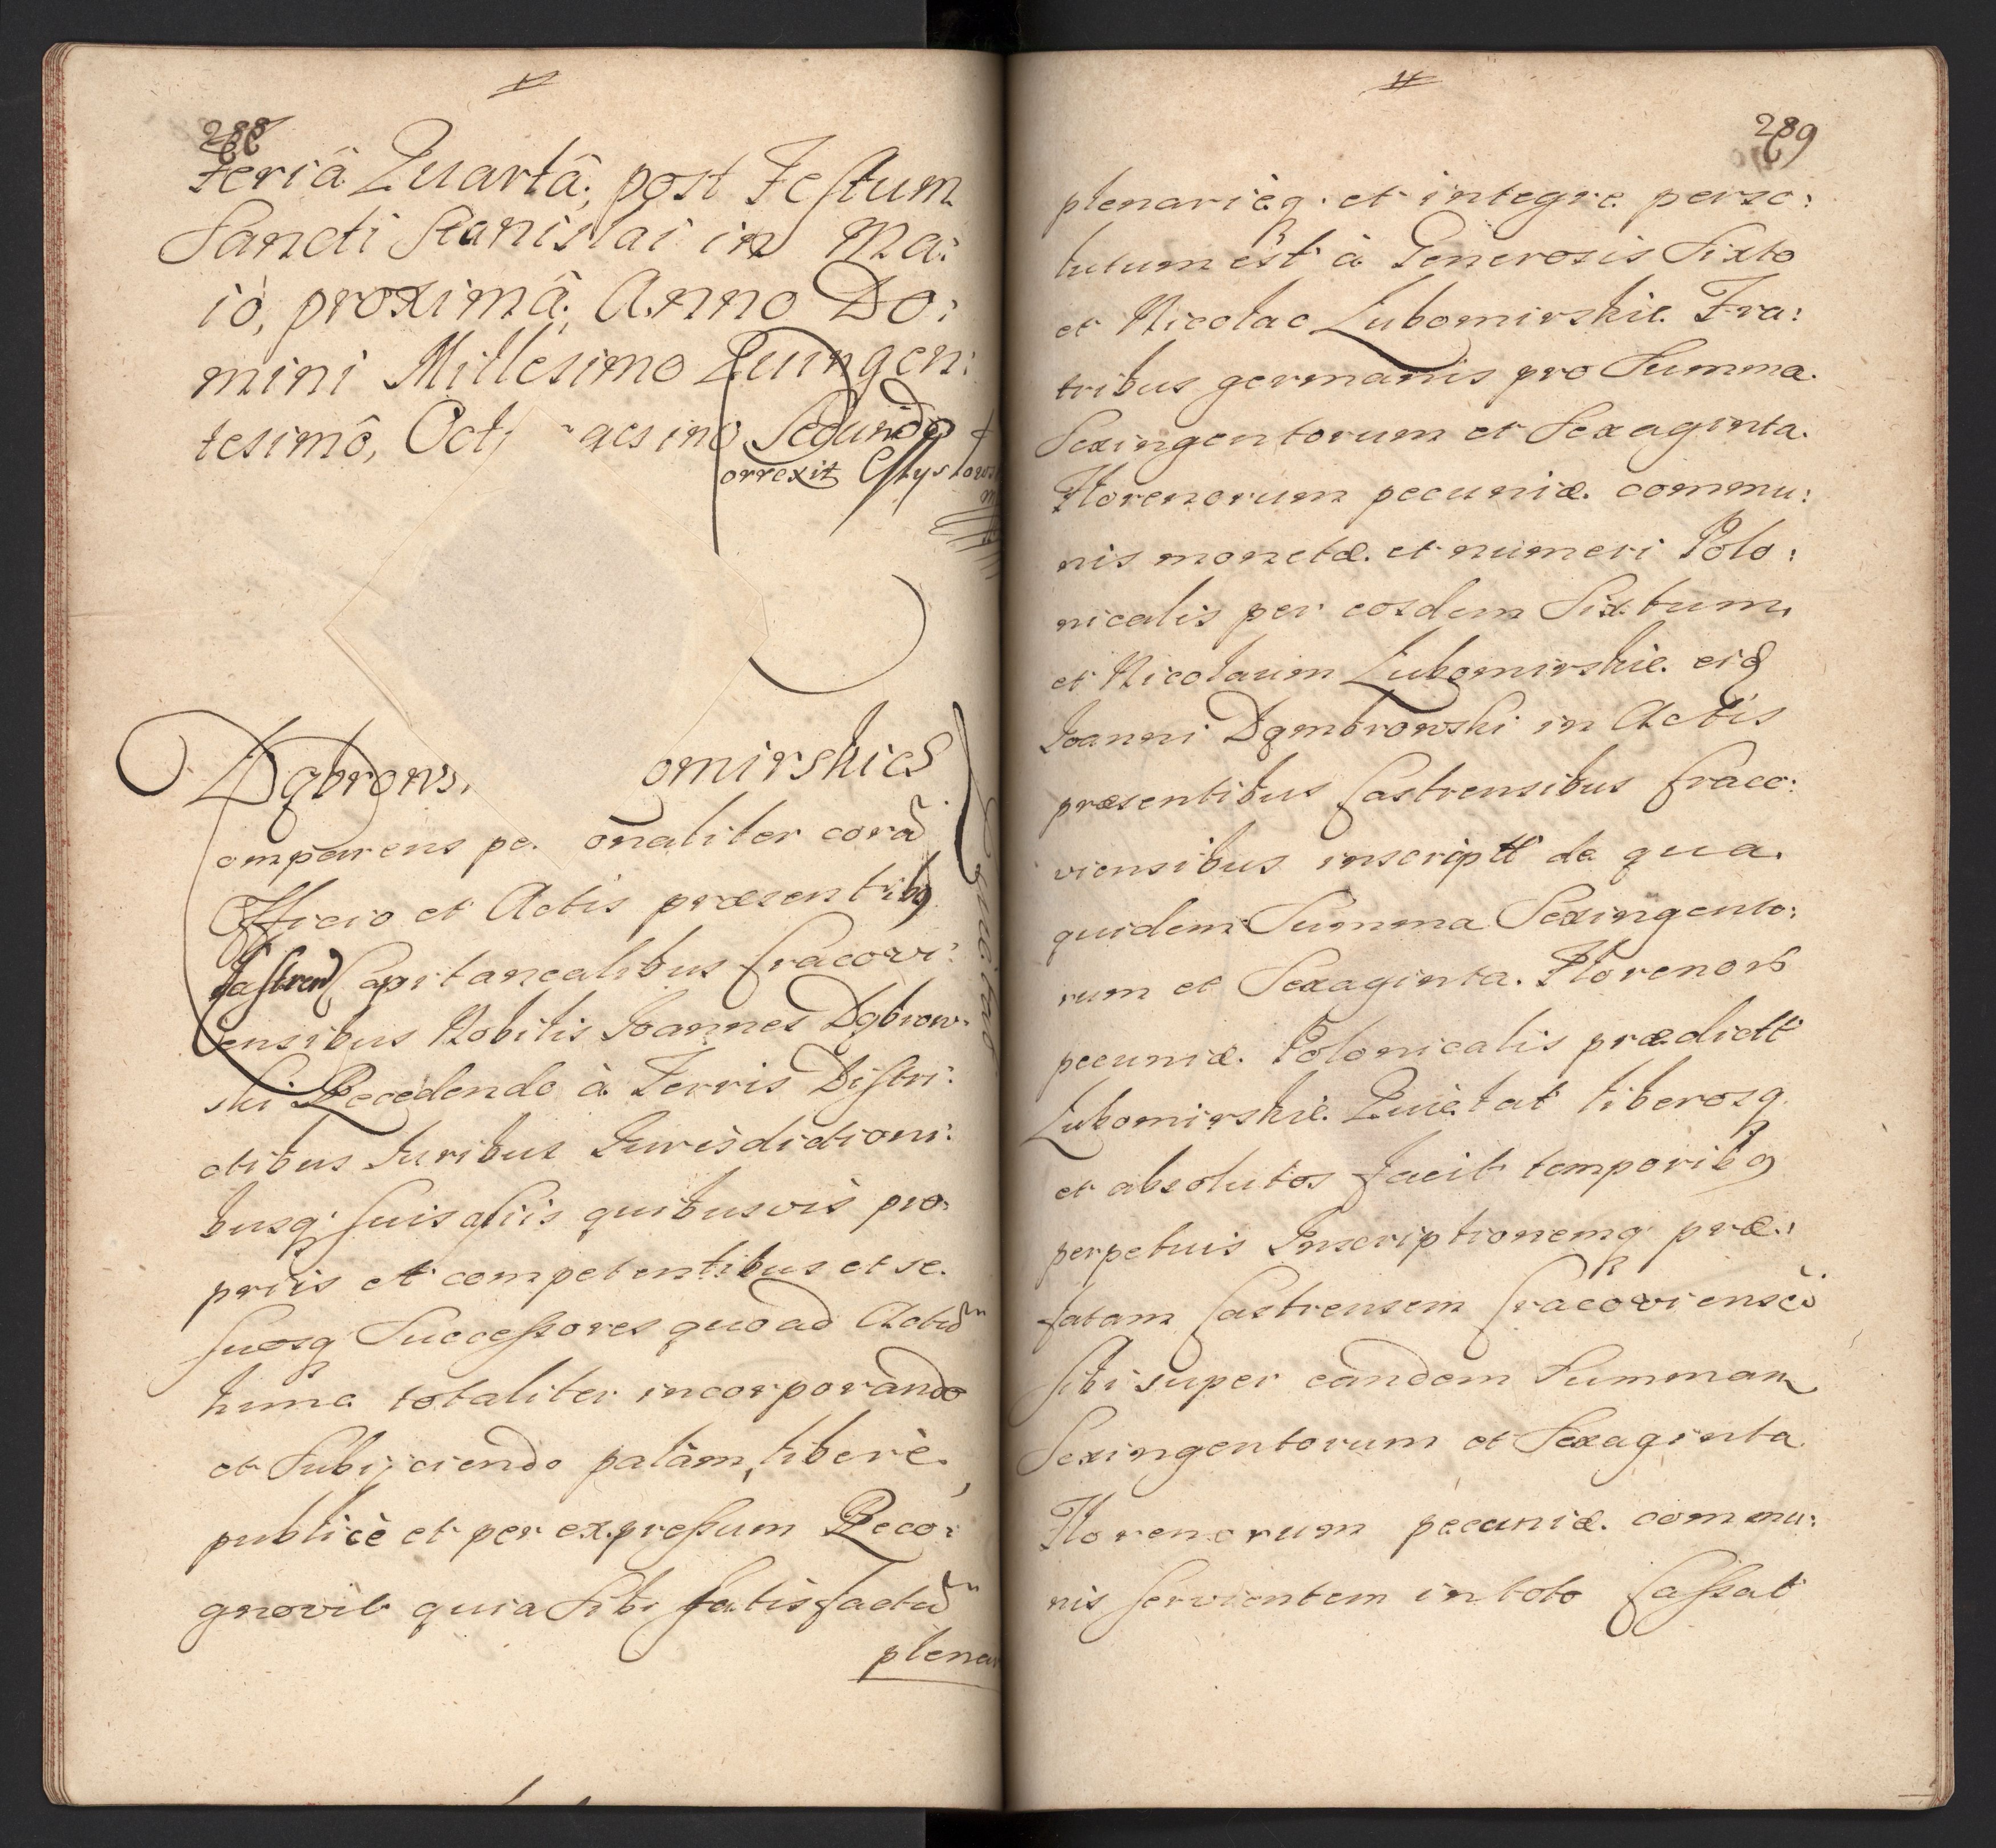 288
Feriâ Quartâ, post Festum
Sancti Stanislai in Ma:
io, proximâ Anno Do:
mini Millesimo Quingen:
tesimô, Oct gesimo Secundo
orrexit
Dąbrows. omirskies
omparens per onaliter corã
Officio et Actis præsentibg
Castren Capitanealibus Cracovi:
ensibus Nobilis Joannes Dąbrow:
ski Recedendo à Terris Distri:
ctibus Juribus Jurisdictioni:
busq; suis aliis quibusvis pro:
priis et competentibus et se
suosq Successores quoad Actũ
hunc totaliter incorporando
et Subijciendo palàm, liberè,
publicè et per expressum Reco:
gnovit quia Sibi satisfactũ
plenar
289
plenarièq. et integre perso:
lutum est à Generosis Sixto
et Nicolao Lubomirskie Fra:
tribus germanis pro Summa
Sexingentorum et Sexaginta
Florenorum pecuniæ commu:
nis monetæ et numeri Polo:
nicalis per eosdem Sixtum
et Nicolaum Lubomirskie eid
Joanni Dąmbrowski in Actis
præsentibus Castrensibus Craco:
viensibus inscriptt de qua
quidem Summa Sexingento:
rum et Sexaginta Florenor
pecuniæ Polonicalis prædictt
Lubomirskie Quietat liberosq
et absolutos facit temporibg
perpetuis Inscriptionemq præ:
fatam Castrensem Cracoviensẽ
sibi super eandem Summam
Sexingentorum et Sexaginta
Florenorum pecuniæ commu:
nis servientem in toto Cassat